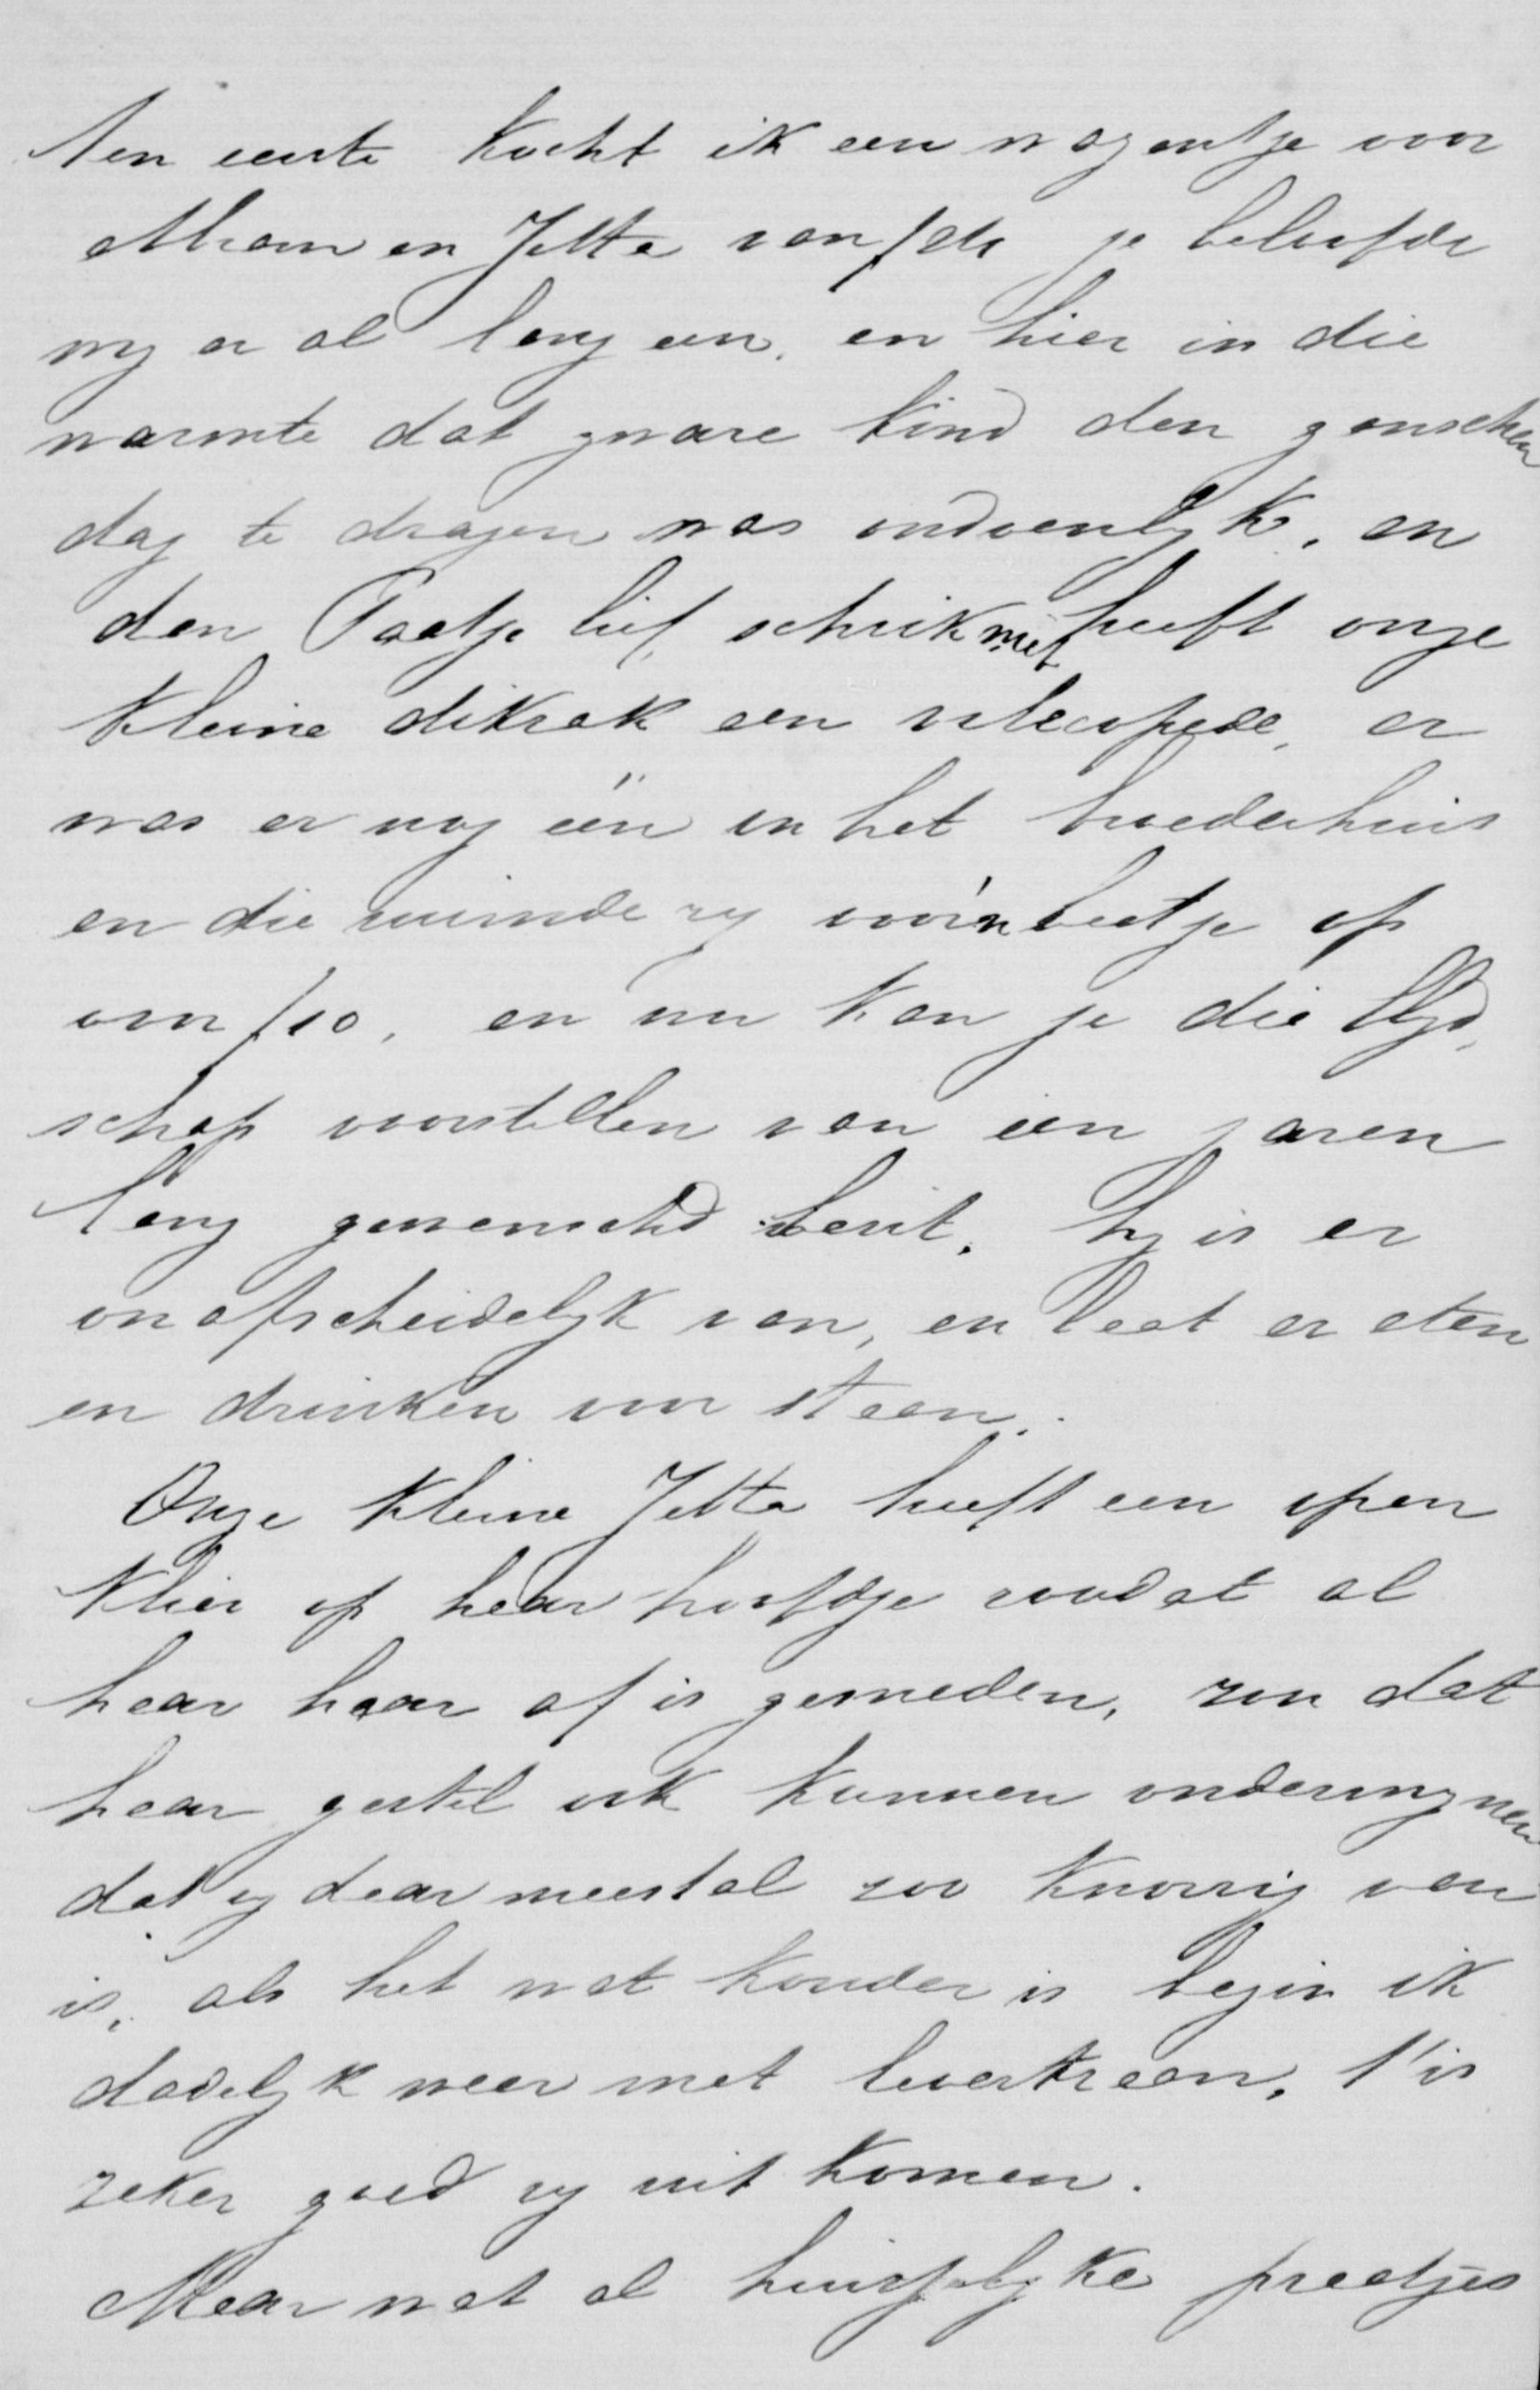 Ten eerste kocht ik een wagentje voor
Abram en Jetta van f
je beloofde
my er al lang een, en hier in die
warmte dat zware kind den ganschen
dag te dragen was ondoenlyk, en
dan Paatje lief, schrik niet heeft onze
kleine dikzak een velocipede, er
was er nog één in het broederhuis
en die ruimde zy voor'n beetje op
voor f10, en nu kan je die blyd,
schap voorstellen van een jaren
lang gewenscht bezit, hy is er
onafscheidelyk van, en laat er eten
en drinken voor staan.
Onze kleine Jetta heeft een open
klier op haar hoofdje zoodat al
haar haar af is gesneden, zou dat
haar gestel ook kunnen ondermynen
dat zy daar meestal zoo knorrig van
is, als het wat kouder is begin ik
dadelyk weer met levertraan, 't is
zeker goed zy uit komen.
Maar wat al huisselyke praatjes